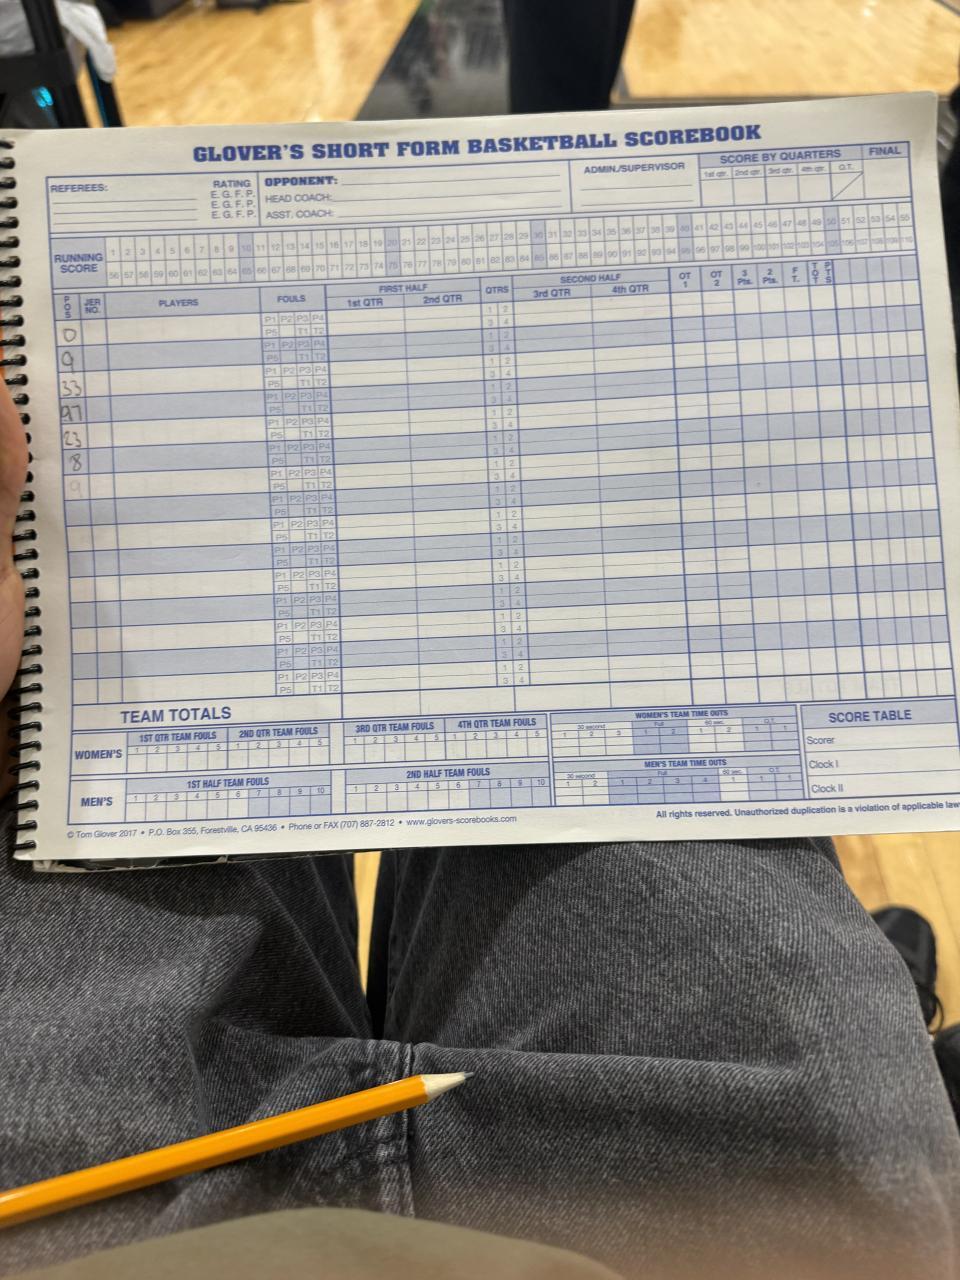 GLOVER'S SHORT FORM BASKETBALL SCOREBOOK
REFEREES: RATING
E. G. F. P.
E. G. F. P.
E. G. F. P.
OPPONENT:
HEAD COACH:
ASST. COACH:
ADMIN./SUPERVISOR
SCORE BY QUARTERS FINAL
1st qtr. 2nd qtr. 3rd qtr. 4th qtr. O.T.
RUNNING SCORE
1 2 3 4 5 6 7 8 9 10 11 12 13 14 15 16 17 18 19 20 21 22 23 24 25 26 27 28 29 30 31 32 33 34 35 36 37 38 39 40 41 42 43 44 45 46 47 48 49 50 51 52 53 54 55
56 57 58 59 60 61 62 63 64 65 66 67 68 69 70 71 72 73 74 75 76 77 78 79 80 81 82 83 84 85 86 87 88 89 90 91 92 93 94 95 96 97 98 99 100 101 102 103 104 105 106 107 108 109 110
POS JER. NO. PLAYERS FOULS FIRST HALF 1st QTR 2nd QTR QTRS SECOND HALF 3rd QTR 4th QTR OT 1 OT 2 3 Pts. 2 Pts. F. T. TOT PTS
0 P1 P2 P3 P4 1 2
P5 T1 T2 3 4
9 P1 P2 P3 P4 1 2
P5 T1 T2 3 4
33 P1 P2 P3 P4 1 2
P5 T1 T2 3 4
P1 P2 P3 P4 1 2
P5 T1 T2 3 4
23 P1 P2 P3 P4 1 2
P5 T1 T2 3 4
8 P1 P2 P3 P4 1 2
P5 T1 T2 3 4
9 P1 P2 P3 P4 1 2
P5 T1 T2 3 4
P1 P2 P3 P4 1 2
P5 T1 T2 3 4
P1 P2 P3 P4 1 2
P5 T1 T2 3 4
P1 P2 P3 P4 1 2
P5 T1 T2 3 4
P1 P2 P3 P4 1 2
P5 T1 T2 3 4
P1 P2 P3 P4 1 2
P5 T1 T2 3 4
P1 P2 P3 P4 1 2
P5 T1 T2 3 4
P1 P2 P3 P4 1 2
P5 T1 T2 3 4
P1 P2 P3 P4 1 2
P5 T1 T2 3 4
TEAM TOTALS
WOMEN'S
1ST QTR TEAM FOULS 2ND QTR TEAM FOULS 3RD QTR TEAM FOULS 4TH QTR TEAM FOULS
1 2 3 4 5 1 2 3 4 5 1 2 3 4 5 1 2 3 4 5
WOMEN'S TEAM TIME OUTS
30 second Full 60 sec. O.T.
1 2 3 1 2 1 2 1 1
MEN'S
1ST HALF TEAM FOULS 2ND HALF TEAM FOULS
1 2 3 4 5 6 7 8 9 10 1 2 3 4 5 6 7 8 9 10
MEN'S TEAM TIME OUTS
30 second Full 60 sec. O.T.
1 2 1 2 3 4 1 1 1
SCORE TABLE
Scorer
Clock I
Clock II
© Tom Glover 2017 • P.O. Box 355, Forestville, CA 95436 • Phone or FAX (707) 887-2812 • www.glovers-scorebooks.com
All rights reserved. Unauthorized duplication is a violation of applicable law